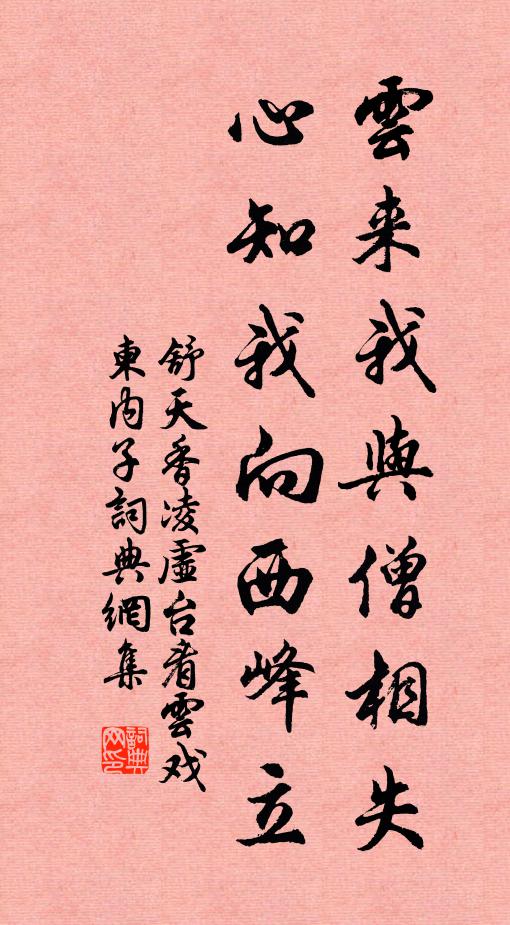 雲来我與僧相失
心知我向西峰立
舒天香凌虛台看雲戏
東内子詞典網集
詞典
网印